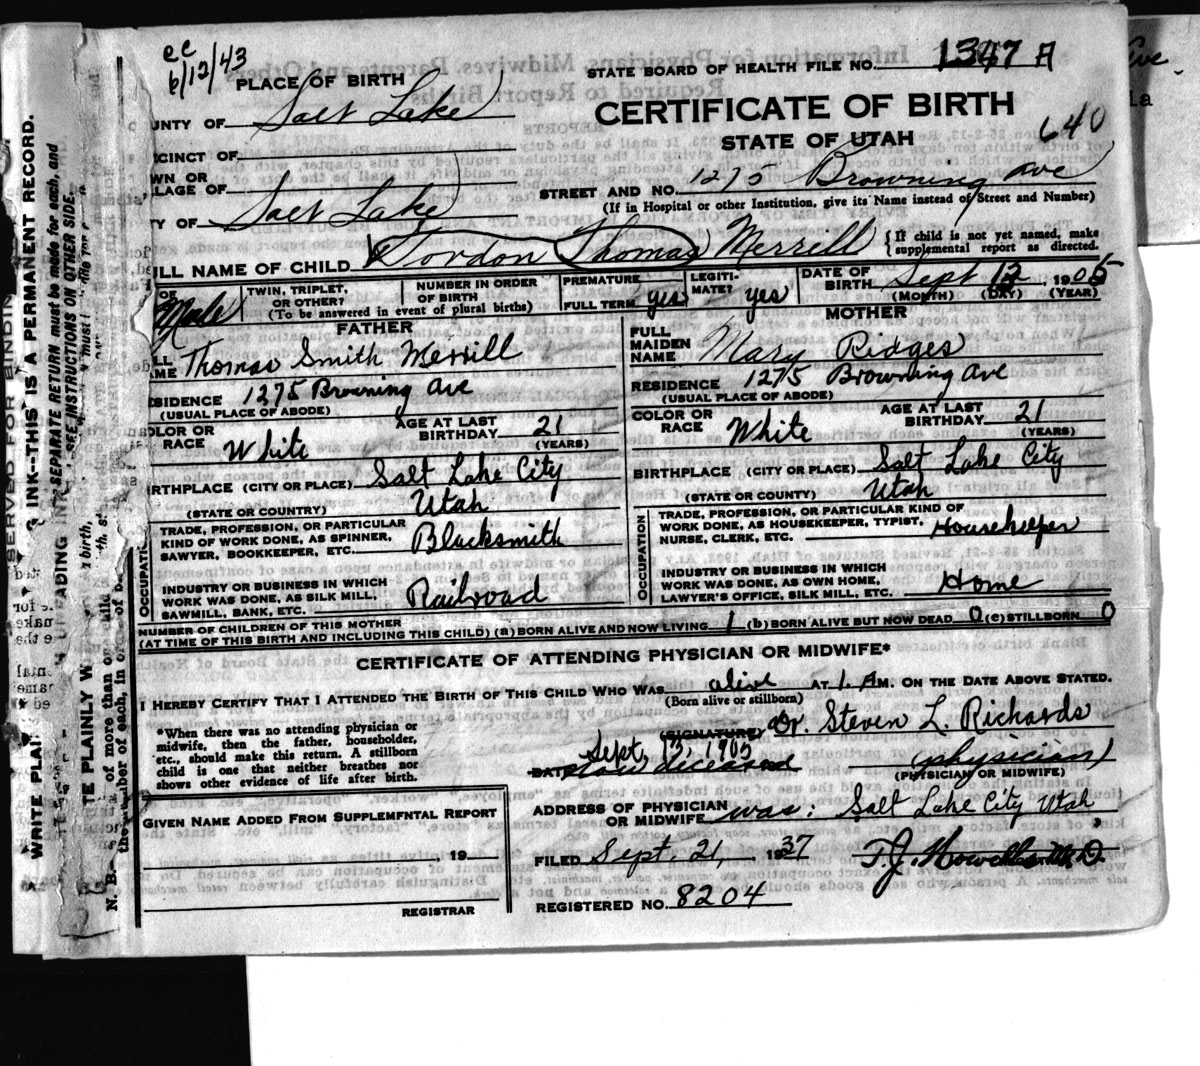 cc
6/12/43
PLACE OF BIRTH
STATE BOARD OF HEALTH FILE NO. 1347 A
UNTY OF Salt Lake
CERTIFICATE OF BIRTH
STATE OF UTAH
640
CINCT OF
WN OR
LAGE OF
STREET AND NO. 1275 Browning Ave
(If in Hospital or other Institution, give its Name instead of Street and Number)
TY OF Salt Lake
ULL NAME OF CHILD Gordon Thomas Merrill
{If child is not yet named, make
supplemental report as directed.
OF Male
TWIN, TRIPLET,
OR OTHER?
(To be answered in event of plural births)
NUMBER IN ORDER
OF BIRTH
PREMATURE
FULL TERM yes
LEGITI-
MATE? yes
DATE OF
BIRTH Sept 13 1905
(MONTH) (DAY) (YEAR)
FATHER
LL
AME Thomas Smith Merrill
SIDENCE 1275 Browning Ave
(USUAL PLACE OF ABODE)
OLOR OR
RACE White
AGE AT LAST
BIRTHDAY 21
(YEARS)
RTHPLACE (CITY OR PLACE) Salt Lake City
(STATE OR COUNTRY) Utah
OCCUPATION
TRADE, PROFESSION, OR PARTICULAR
KIND OF WORK DONE, AS SPINNER,
SAWYER, BOOKKEEPER, ETC. Blacksmith
INDUSTRY OR BUSINESS IN WHICH
WORK WAS DONE, AS SILK MILL,
SAWMILL, BANK, ETC. Railroad
MOTHER
FULL
MAIDEN
NAME Mary Ridges
RESIDENCE 1275 Browning Ave
(USUAL PLACE OF ABODE)
COLOR OR
RACE White
AGE AT LAST
BIRTHDAY 21
(YEARS)
BIRTHPLACE (CITY OR PLACE) Salt Lake City
(STATE OR COUNTY) Utah
OCCUPATION
TRADE, PROFESSION, OR PARTICULAR KIND OF
WORK DONE, AS HOUSEKEEPER, TYPIST,
NURSE, CLERK, ETC. Housekeeper
INDUSTRY OR BUSINESS IN WHICH
WORK WAS DONE, AS OWN HOME,
LAWYER'S OFFICE, SILK MILL, ETC. Home
NUMBER OF CHILDREN OF THIS MOTHER
(AT TIME OF THIS BIRTH AND INCLUDING THIS CHILD) (a) BORN ALIVE AND NOW LIVING 1 (b) BORN ALIVE BUT NOW DEAD 0 (c) STILLBORN 0
CERTIFICATE OF ATTENDING PHYSICIAN OR MIDWIFE*
I HEREBY CERTIFY THAT I ATTENDED THE BIRTH OF THIS CHILD WHO WAS alive AT 1. AM. ON THE DATE ABOVE STATED.
(Born alive or stillborn)
*When there was no attending physician or
midwife, then the father, householder,
etc., should make this return. A stillborn
child is one that neither breathes nor
shows other evidence of life after birth.
(SIGNATURE) Dr. Steven L. Richards
Sept. 13, 1905
DATE now deceased
physician
(PHYSICIAN OR MIDWIFE)
ADDRESS OF PHYSICIAN
OR MIDWIFE was: Salt Lake City Utah
GIVEN NAME ADDED FROM SUPPLEMENTAL REPORT
, 19
REGISTRAR
FILED Sept. 21, 1937 T.J. Howells M.D.
REGISTERED NO. 8204
SERVED FOR BINDIN
WRITE PLAI
ING INK—THIS IS A PERMANENT RECORD.
SEPARATE RETURN must be made for each, and
SEE INSTRUCTIONS ON OTHER SIDE.
TE PLAINLY W
N. B.
of more than
number of each, in